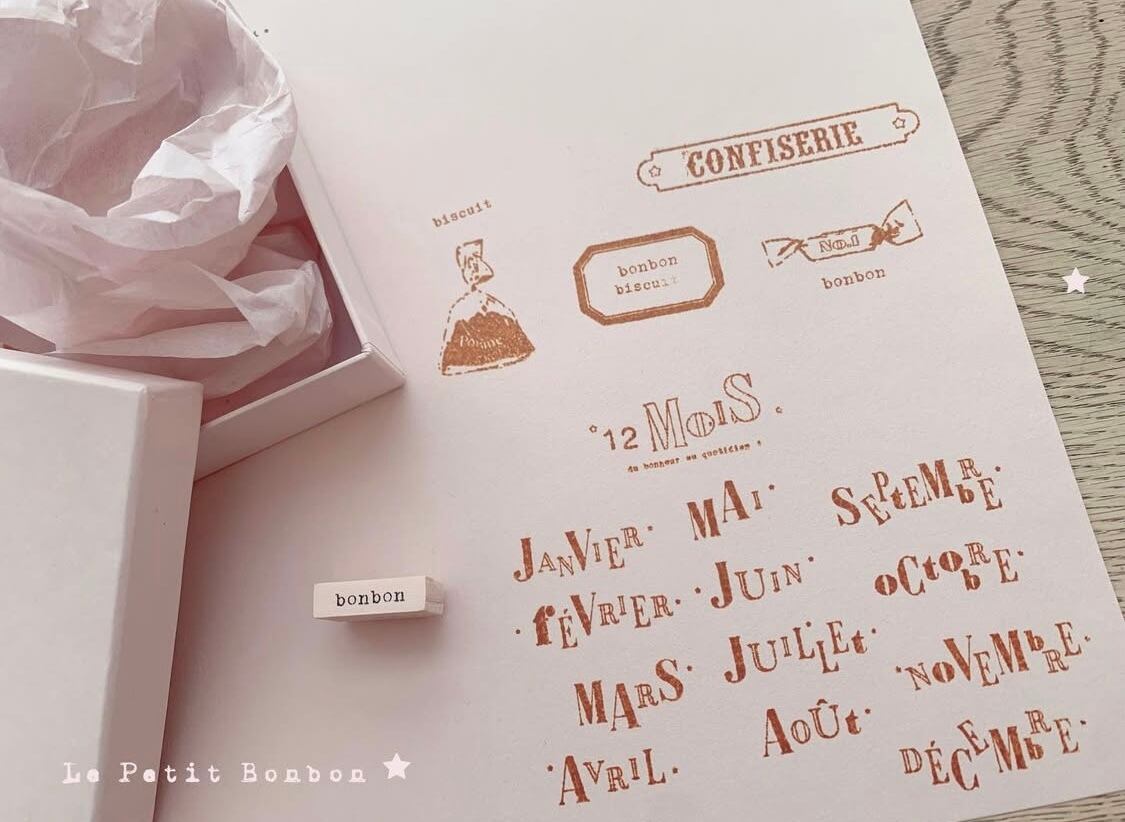 CONFISERIE
biscuit
bonbon
biscuit
No.1
bonbon
12 MoiS
du bonheur au quotidien
JANVIER
fÉVRIER
MARS
AVRIL
MAI
JUIN
JUILLEt
AoÛt
SEPtEMbRE
oCtobRE
NOVEMbRE
DÉCEMbRE
bonbon
Le Petit Bonbon